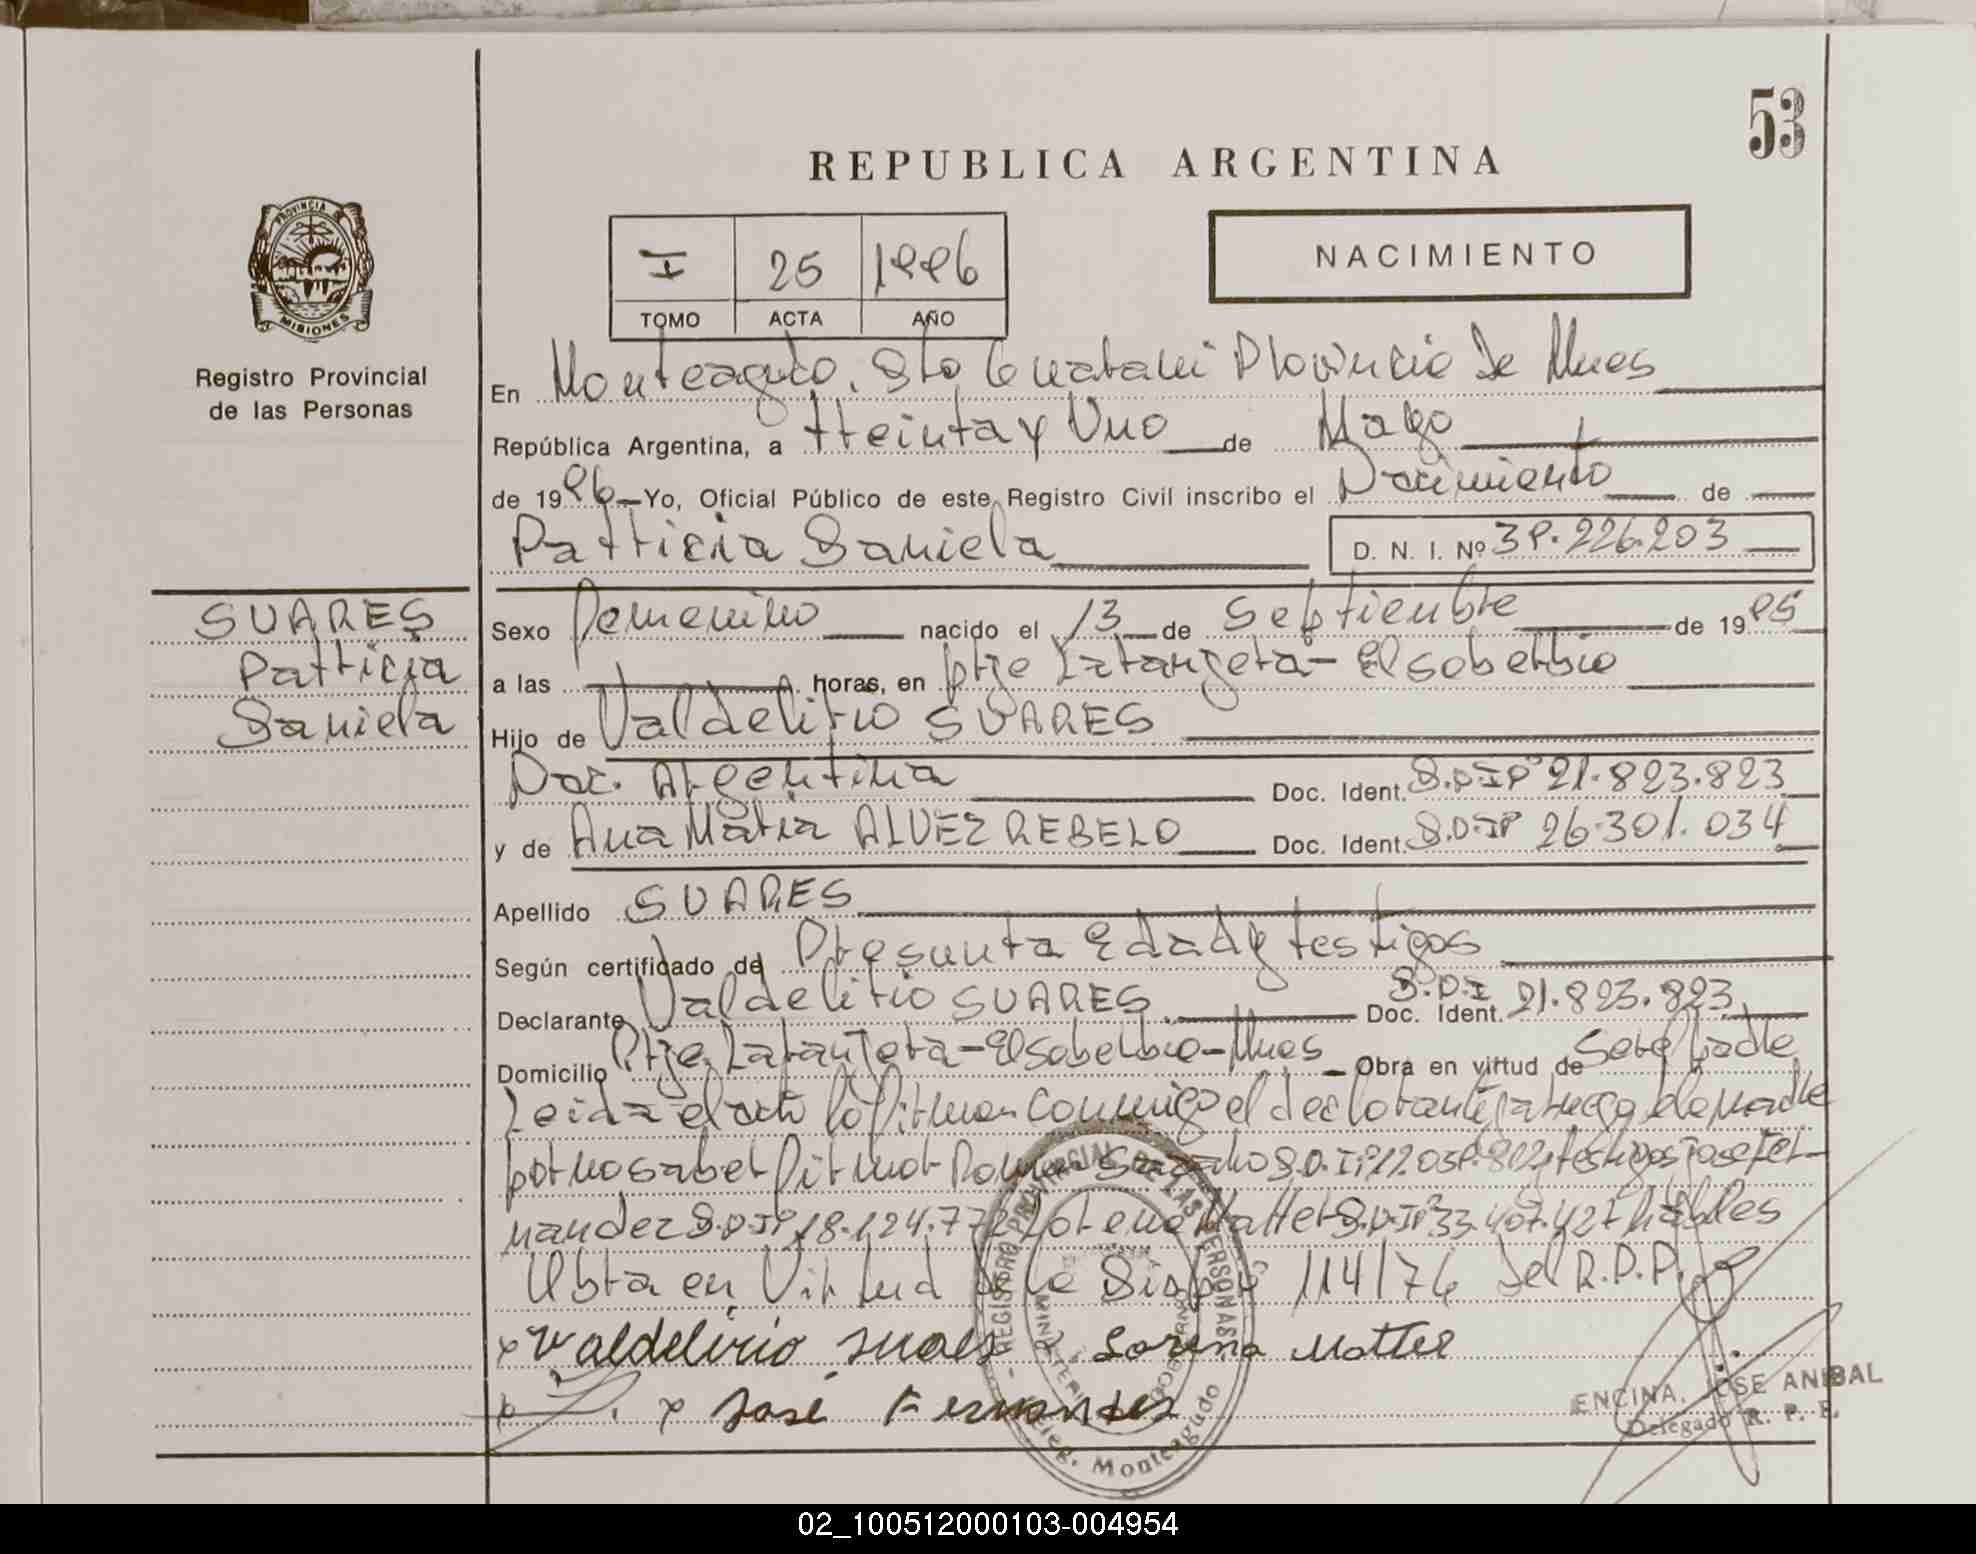 53
REPUBLICA ARGENTINA
PROVINCIA DE
MISIONES
Registro Provincial
de las Personas
I 25 1996
TOMO ACTA AÑO
NACIMIENTO
En Monteagudo, Dto Guarani Provincia de Mnes
República Argentina, a treinta y Uno de Mayo
de 1996 Yo, Oficial Público de este Registro Civil inscribo el Nacimiento de
Patricia Daniela D. N. I. Nº 39.226.203
SUARES
Patricia
Daniela
Sexo Femenino nacido el 13 de Septiembre de 1995
a las horas, en Ptje Latarjeta - El soberbio
Hijo de Valdelirio SUARES
Nac. Argentina Doc. Ident. D.N.Iº 21.823.823
y de Ana Maria ALVEZ REBELO Doc. Ident. D.N.Iº 26.301.034
Apellido SUARES
Según certificado de Presunta Edad y testigos
Declarante Valdelirio SUARES Doc. Ident. D.N.I 21.823.823
Domicilio Ptje. Latarjeta - El soberbio - Mnes Obra en virtud de Ser el padre
Leida el acta la firman conmigo el declarante, a ruego de la madre
por no saber firmar D.N.Iº testigos Jose Fer-
nandez D.N.Iº 18.124.772 Lorena Matter D.N.Iº 33.407.427 habiles
Obra en Virtud de la Disp. 114/76 del R.P.P.
x Valdelirio suares x Lorena Matter
x José Fernandez
REGISTRO PROVINCIAL DE LAS PERSONAS
MINISTERIO DE GOBIERNO
Deleg. Monteagudo
ENCINA, JOSE ANIBAL
Delegado R. P. P.
02_100512000103-004954